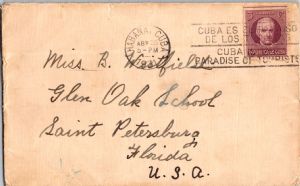 HABANA, CUBA
ABR
5 - PM
CUBA ES
DE LOS
CUBA
PARADISE OF TOURISTS
Miss B. Westfield
Glen Oak School
Saint Petersburg
Florida
U.S.A.